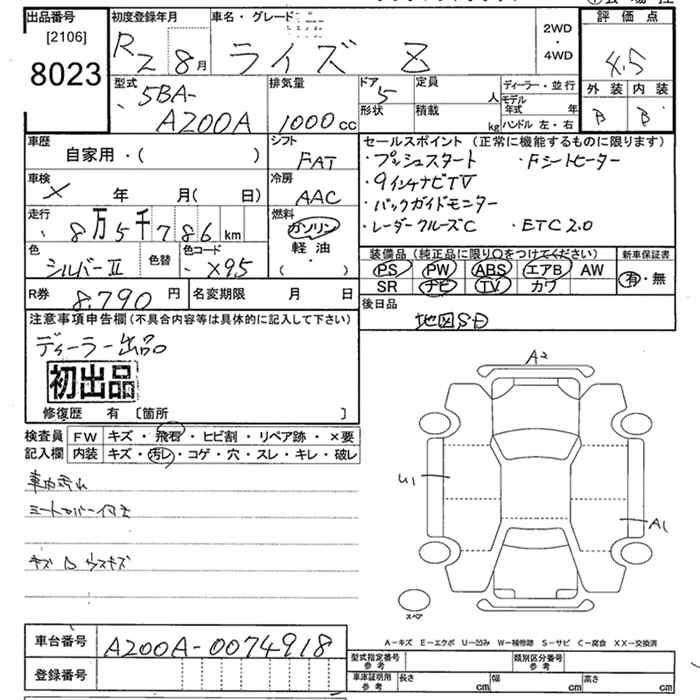 出品番号
[2106]
8023
初度登録年月
R2 8月
車名・グレード
ライズ Z
2WD
・
4WD
評価点
4.5
外装 内装
B B
型式
5BA-
A200A
排気量
1000cc
ドア
5
形状
定員
人
積載
kg
ディーラー・並行
モデル年式 年
ハンドル 左・右
車歴
自家用・( )
シフト
FAT
車検
× 年 月( 日)
冷房
AAC
走行
8万5千786km
燃料
ガソリン
軽油
( )
色
シルバーII
色替
色コード
X95
R券
8,790円
名変期限 月 日
セールスポイント(正常に機能するものに限ります)
・プッシュスタート ・Fシートヒーター
・9インチナビTV
・バックガイドモニター
・レーダークルーズC ・ETC2.0
装備品(純正品に限り○をつけてください)
PS PW ABS エアB AW
SR ナビ TV カワ
新車保証書
有・無
後日品
地図SD
注意事項申告欄(不具合内容等は具体的に記入して下さい)
ディーラー出品
初出品
修復歴 有 〔箇所 〕
検査員記入欄
FW キズ・飛石・ヒビ割・リペア跡・×要
内装 キズ・汚レ・コゲ・穴・スレ・キレ・破レ
車内汚れ
シートカバー付き
キズ 口 ウスキズ
A2
U1
A1
スペア
A-キズ E-エクボ U-凹み W-補修跡 S-サビ C-腐食 XX-交換済
車台番号
A200A-0074918
登録番号
型式指定番号 参考
類別区分番号 参考
車庫証明用 参考
長さ cm 幅 cm 高さ cm